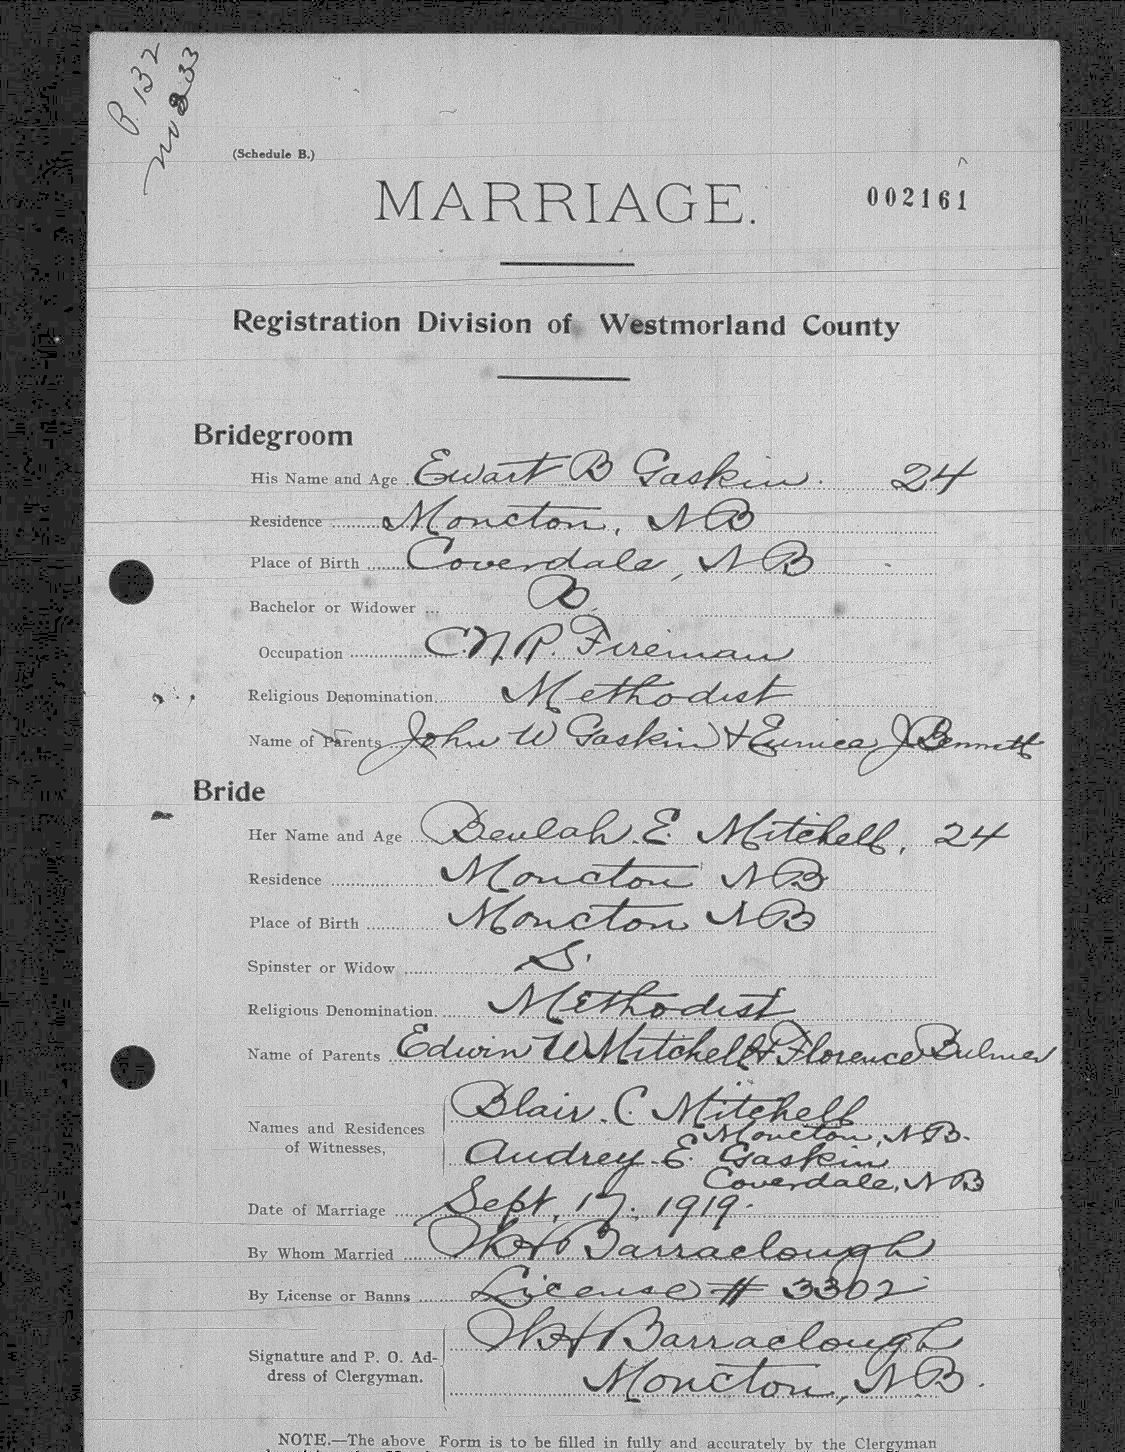 P. 132
No 833
(Schedule B.)
MARRIAGE.
002161
Registration Division of Westmorland County
Bridegroom
His Name and Age Ewart B Gaskin. 24
Residence Moncton, NB
Place of Birth Coverdale, NB
Bachelor or Widower B
Occupation C.N.R. Fireman
Religious Denomination Methodist
Name of Parents John W Gaskin & Eunice J Bennett
Bride
Her Name and Age Beulah. E. Mitchell, 24
Residence Moncton NB
Place of Birth Moncton NB
Spinster or Widow S.
Religious Denomination Methodist
Name of Parents Edwin W Mitchell & Florence Bulmer
Names and Residences of Witnesses,
Blair. C. Mitchell
Moncton, NB.
Audrey E. Gaskin
Coverdale, NB
Date of Marriage Sept. 17. 1919.
By Whom Married Barraclough
By License or Banns License # 3302
Signature and P. O. Ad-
dress of Clergyman.
Barraclough
Moncton, NB.
NOTE.—The above Form is to be filled in fully and accurately by the Clergyman